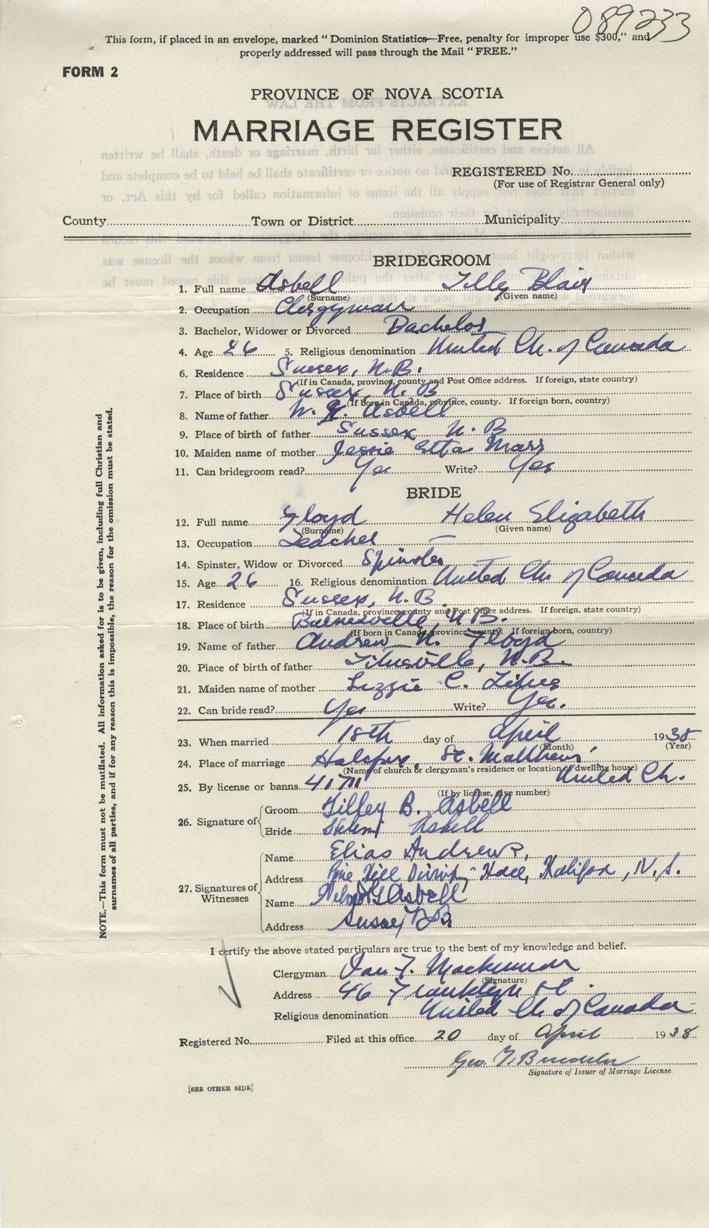 089233
This form, if placed in an envelope, marked "Dominion Statistics—Free, penalty for improper use $300," and
properly addressed will pass through the Mail "FREE."
FORM 2
PROVINCE OF NOVA SCOTIA
MARRIAGE REGISTER
REGISTERED No.
(For use of Registrar General only)
County Town or District Municipality
BRIDEGROOM
1. Full name Asbell Tilley Blair
(Surname) (Given name)
2. Occupation Clergyman
3. Bachelor, Widower or Divorced Bachelor
4. Age 26 5. Religious denomination United Ch. of Canada
6. Residence Sussex, N.B.
(If in Canada, province, county and Post Office address. If foreign, state country)
7. Place of birth Sussex, N. B
(If born in Canada, province, county. If foreign born, country)
8. Name of father W. Asbell
9. Place of birth of father Sussex N. B
10. Maiden name of mother Jessie Etta Marr
11. Can bridegroom read? Yes Write? Yes
BRIDE
12. Full name Floyd Helen Elizabeth
(Surname) (Given name)
13. Occupation Teacher
14. Spinster, Widow or Divorced Spinster
15. Age 26 16. Religious denomination United Ch. of Canada
17. Residence Sussex, N.B.
(If in Canada, province, county and Post Office address. If foreign, state country)
18. Place of birth Barnesville, N.B.
(If born in Canada, province, county. If foreign born, country)
19. Name of father Andrew N. Floyd
20. Place of birth of father Titusville, N.B.
21. Maiden name of mother Lizzie C. Titus
22. Can bride read? Yes Write? Yes.
23. When married 18th day of April 1938
(Month) (Year)
24. Place of marriage Halifax, St. Matthews'
(Name of church or clergyman's residence or location of dwelling house) United Ch.
25. By license or banns 41711
(If by license, give number)
26. Signature of Groom Tilley B. Asbell
Bride Helen Asbell
27. Signatures of Witnesses
Name Elias Andrews,
Address Pine Hill Divinity Hall, Halifax, N.S.
Name Asbell
Address Sussex N B
NOTE.—This form must not be mutilated. All information asked for is to be given, including full Christian and
surnames of all parties, and if for any reason this is impossible, the reason for the omission must be stated.
I certify the above stated particulars are true to the best of my knowledge and belief.
Clergyman Ian F. Mackinnon
(Signature)
Address 46 Franklyn St.
Religious denomination United Ch of Canada
Registered No. Filed at this office 20 day of April 1938
Geo.
Signature of Issuer of Marriage License.
[SEE OTHER SIDE]